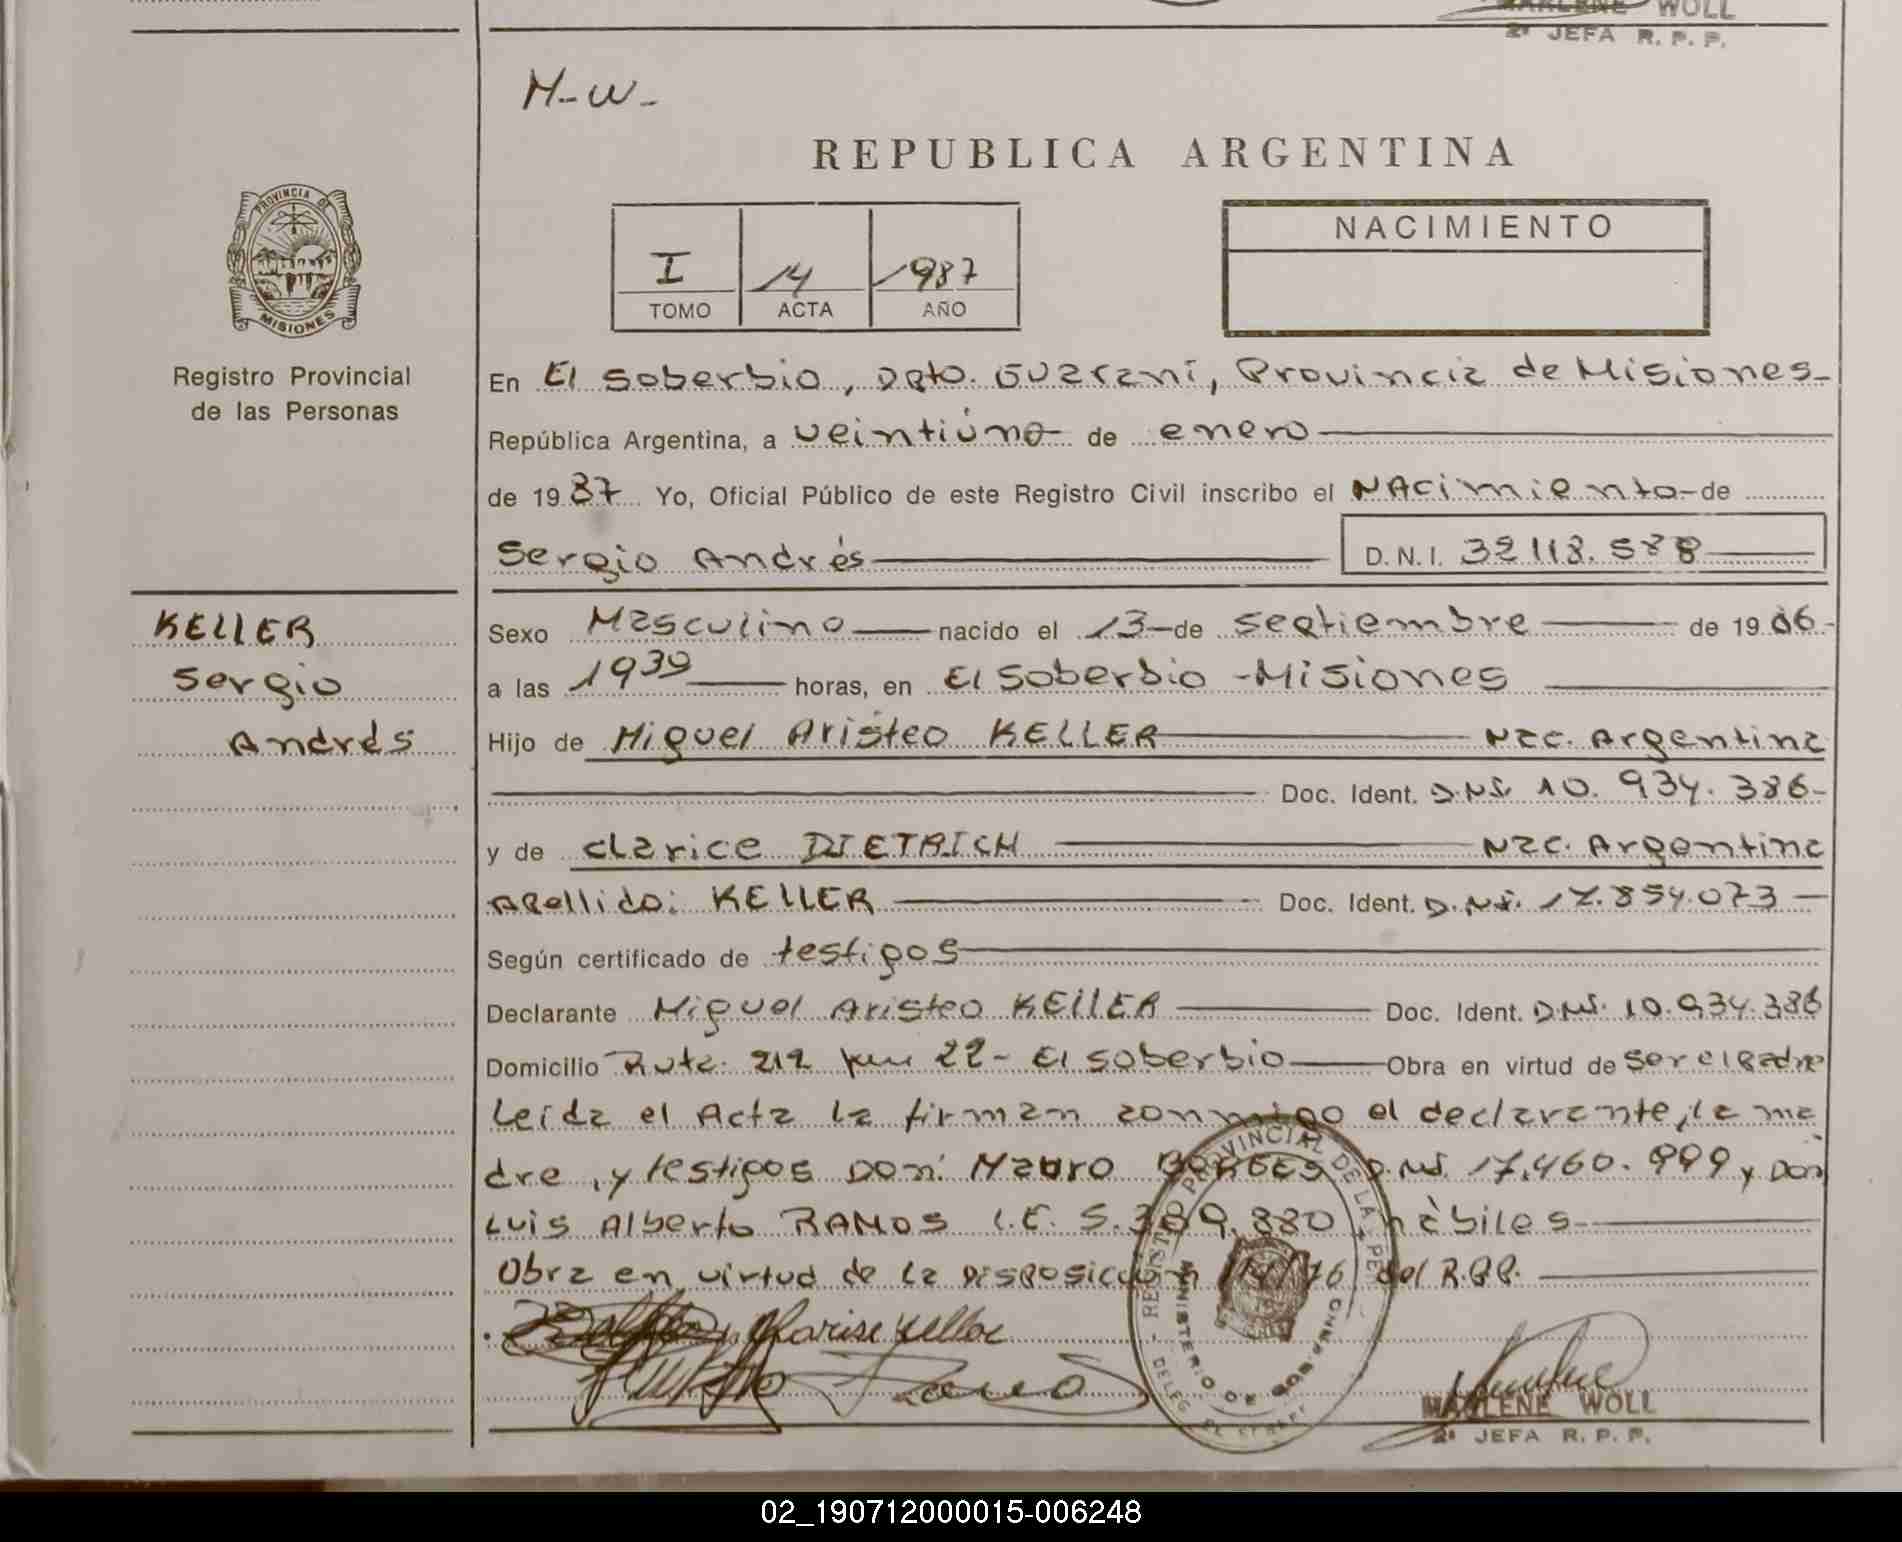 MARLENE WOLL
2ª JEFA R. P. P.
M-W-
REPUBLICA ARGENTINA
PROVINCIA DE
MISIONES
Registro Provincial
de las Personas
I 14 1987
TOMO ACTA AÑO
NACIMIENTO
En El Soberbio, Dpto. Guaraní, Provincia de Misiones-
República Argentina, a veintiúno de enero
de 19 87 Yo, Oficial Público de este Registro Civil inscribo el NACimiento-de
Sergio Andrés D.N.I. 32.118.588
KELLER
Sergio
Andrés
Sexo Masculino nacido el 13-de septiembre de 19 86-
a las 19 30 horas, en El Soberbio -Misiones
Hijo de Miguel Aristeo KELLER Nac. Argentina
Doc. Ident. D.NI. 10.934.386-
y de Clarice DIETRICH Nac. Argentina
Apellido: KELLER Doc. Ident. D.NI. 17.854.073-
Según certificado de testigos
Declarante Miguel Aristeo KELLER Doc. Ident. D.NI. 10.934.386
Domicilio Ruta. 212 km 22- El Soberbio Obra en virtud de ser el padre
Leida el Acta la firman conmigo el declarante, la ma
dre, y testigos Don: Mauro BORGES D.NI. 17.460.999 y Don
Luis Alberto RAMOS L.E. 5.309.880 hàbiles-
Obra en virtud de la Disposición 114/76 del R.P.P.
Ramos
REGISTRO PROVINCIAL DE LA
MINISTERIO DE GOB
MARLENE WOLL
2ª JEFA R. P. P.
02_190712000015-006248